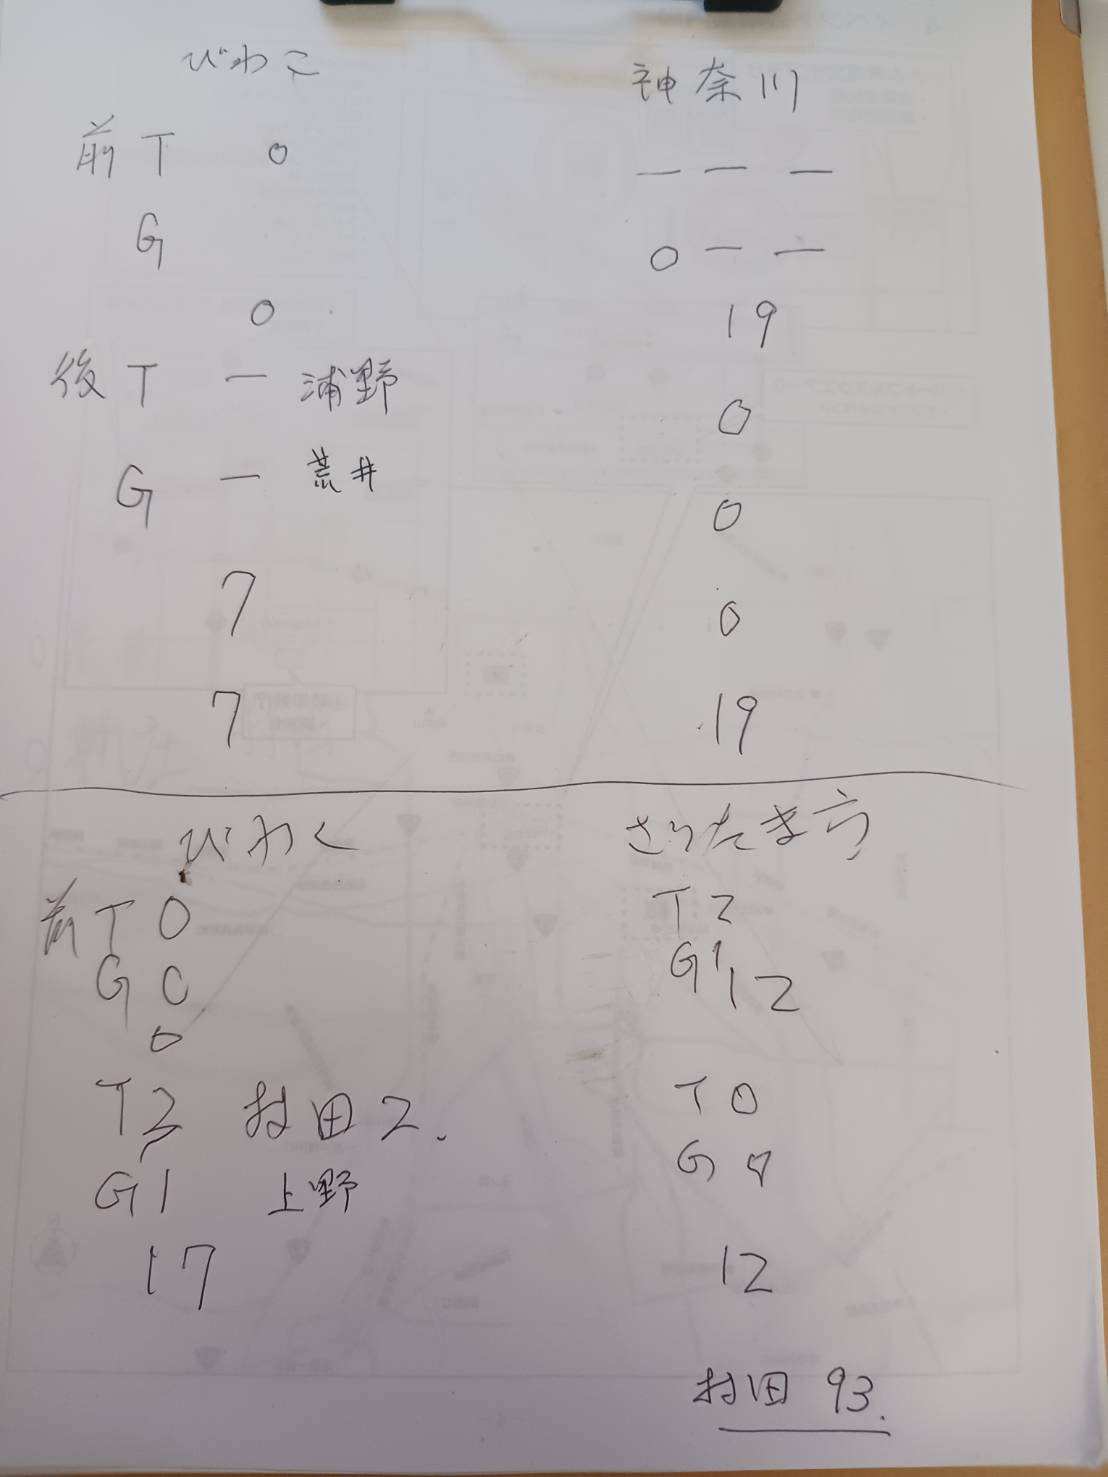 びわこ 神奈川
前 T 0 一 一 一
G 0 一 一
0 19
後 T 一 浦野 0
G 一 荒井 0
7 0
7 19
びわく さいたま市
前 T 0 T 2
G 0 G 1
0 12
T 3 村田 2. T 0
G 1 上野 G
17 12
村田 93.